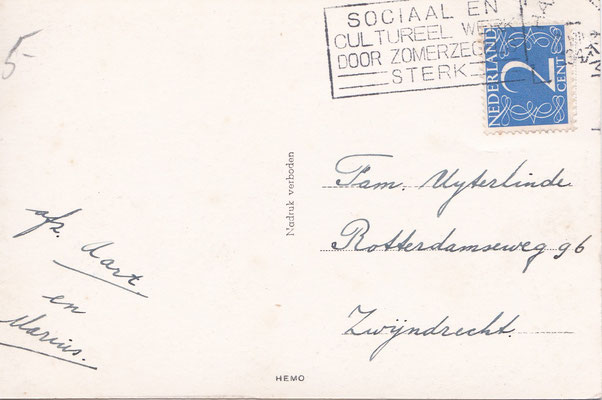 5-
SOCIAAL EN
CULTUREEL WERK
DOOR ZOMERZEG
STERK
NEDERLAND
2
CENT
Nadruk verboden
Fam. Uyterlinde
Rotterdamseweg 96
Zwijndrecht.
afz. Aart
en
Marius.
HEMO